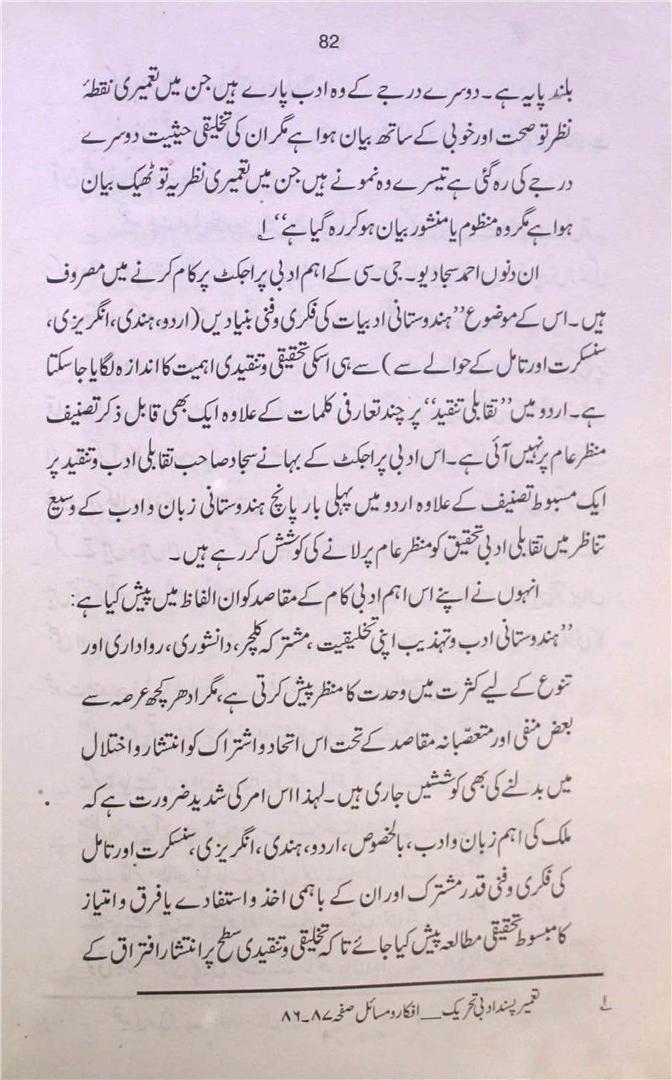 82
بلند پایہ ہے۔ دوسرے درجے کے وہ ادب پارے ہیں جن میں تعمیری نقطۂ
نظر تو صحت اور خوبی کے ساتھ بیان ہوا ہے مگر ان کی تخلیقی حیثیت دوسرے
درجے کی رہ گئی ہے تیسرے وہ نمونے ہیں جن میں تعمیری نظریہ تو ٹھیک بیان
ہوا ہے مگر وہ منظوم یا منشور بیان ہو کر رہ گیا ہے‘‘ ۱؎
ان دنوں احمد سجاد یو۔ جی۔ سی کے اہم ادبی پراجکٹ پر کام کرنے میں مصروف
ہیں۔ اس کے موضوع ’’ہندوستانی ادبیات کی فکری و فنی بنیادیں (اردو، ہندی، انگریزی،
سنسکرت اور تامل کے حوالے سے) سے ہی اسکی تحقیقی و تنقیدی اہمیت کا اندازہ لگایا جا سکتا
ہے۔ اردو میں ’’تقابلی تنقید‘‘ پر چند تعارفی کلمات کے علاوہ ایک بھی قابل ذکر تصنیف
منظر عام پر نہیں آئی ہے۔ اس ادبی پراجکٹ کے بہانے سجاد صاحب تقابلی ادب و تنقید پر
ایک مبسوط تصنیف کے علاوہ اردو میں پہلی بار پانچ ہندوستانی زبان و ادب کے وسیع
تناظر میں تقابلی ادبی تحقیق کو منظر عام پر لانے کی کوشش کر رہے ہیں۔
انہوں نے اپنے اس اہم ادبی کام کے مقاصد کو ان الفاظ میں پیش کیا ہے:
’’ہندوستانی ادب و تہذیب اپنی تخلیقیت، مشترکہ کلچر، دانشوری، رواداری اور
تنوع کے لیے کثرت میں وحدت کا منظر پیش کرتی ہے، مگر ادھر کچھ عرصہ سے
بعض منفی اور متعصبانہ مقاصد کے تحت اس اتحاد و اشتراک کو انتشار و اختلال
میں بدلنے کی بھی کوششیں جاری ہیں۔ لہذا اس امر کی شدید ضرورت ہے کہ
ملک کی اہم زبان و ادب، بالخصوص، اردو، ہندی، انگریزی، سنسکرت اور تامل
کی فکری و فنی قدر مشترک اور ان کے باہمی اخذ و استفادے یا فرق و امتیاز
کا مبسوط تحقیقی مطالعہ پیش کیا جائے تا کہ تخلیقی و تنقیدی سطح پر انتشار افتراق کے
۱؎ تعمیر پسند ادبی تحریک __ افکار و مسائل صفحہ ۸۷۔۸۶